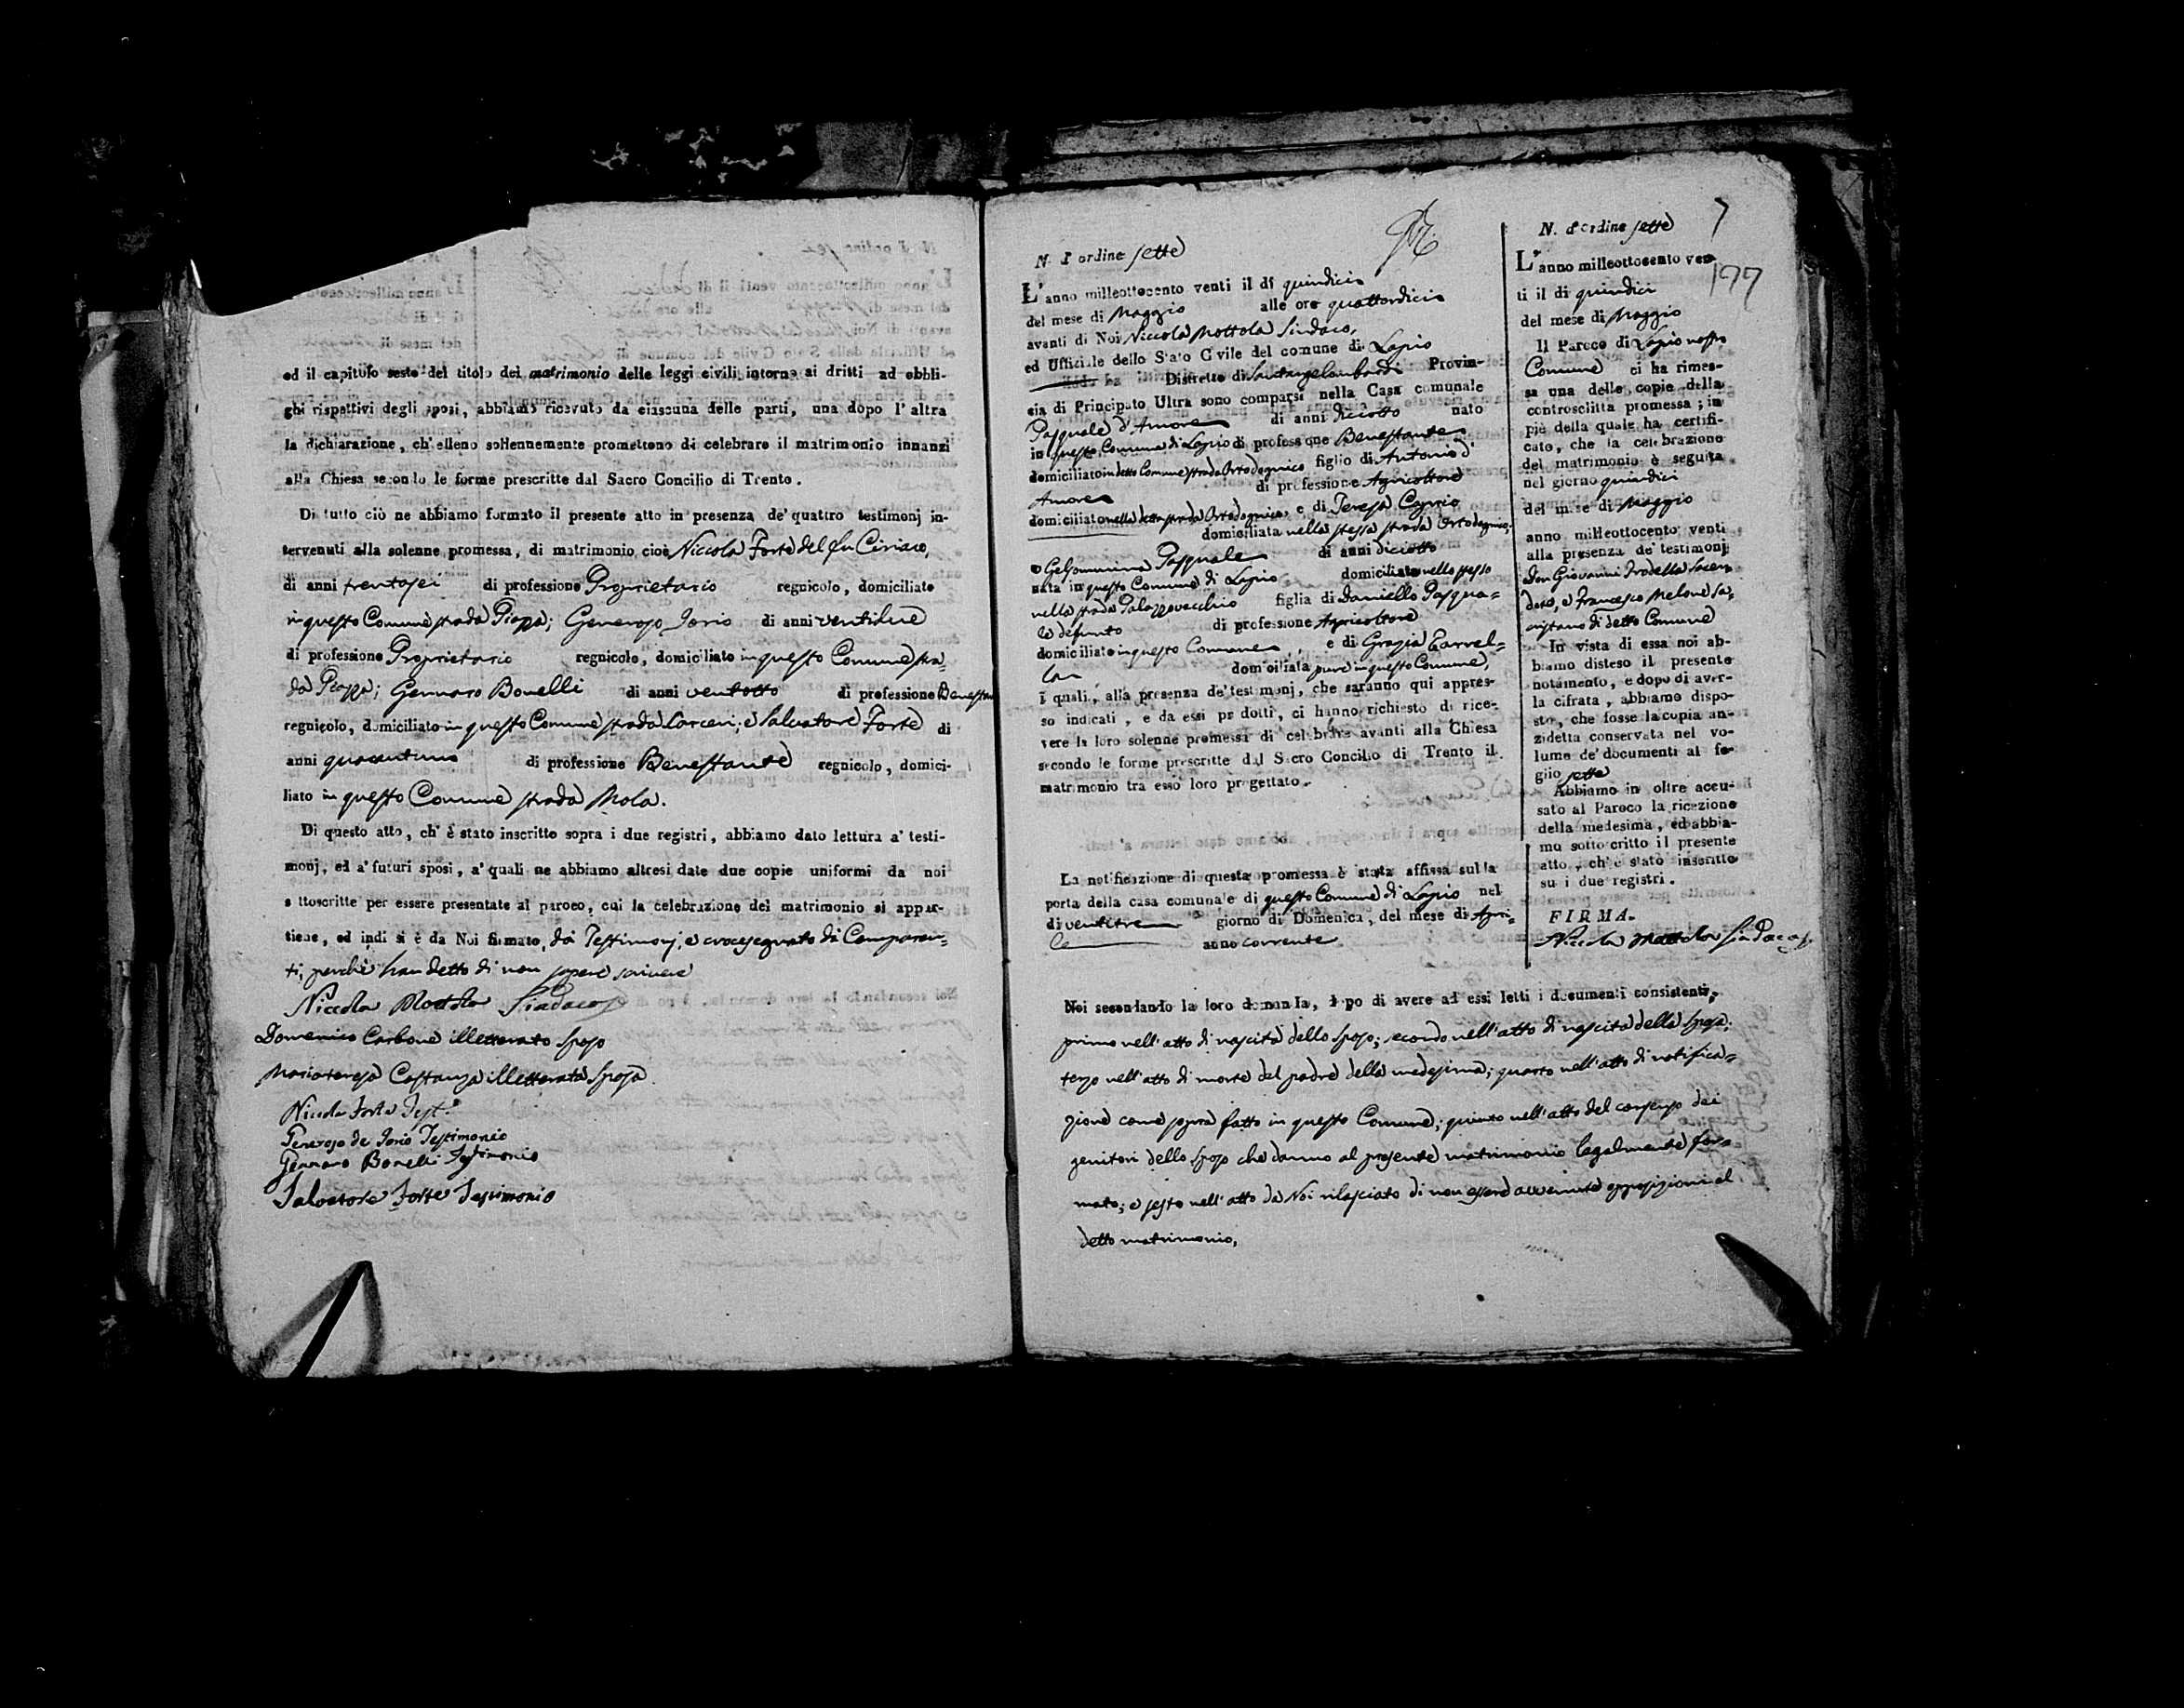 ed il capitolo sesto del titolo del matrimonio delle leggi civili intorno ai dritti ed obbli-
ghi rispettivi degli sposi, abbiamo ricevuto da ciascuna delle parti, una dopo l'altra
la dichiarazione, ch'elleno sollennemente promettono di celebrare il matrimonio innanzi
alla Chiesa secondo le forme prescritte dal Sacro Concilio di Trento.
Di tutto ciò ne abbiamo formato il presente atto in presenza de' quattro testimonj in-
tervenuti alla solenne promessa, di matrimonio cioè Niccola Forte del fu Ciriaco,
di anni trentasei di professione Proprietario regnicolo, domiciliato
in questo Comune strada Piazza; Generoso Iorio di anni ventidue
di professione Proprietario regnicolo, domiciliato in questo Comune stra-
da Piazza; Gennaro Bonelli di anni ventotto di professione Benestan
regnicolo, domiciliato in questo Comune strada Carceri; e Salvatore Forte di
anni quarantuno di professione Benestante regnicolo, domici-
liato in questo Comune strada Mola.
Di questo atto, ch' è stato inscritto sopra i due registri, abbiamo dato lettura a' testi-
monj, ed a' futuri sposi, a' quali ne abbiamo altresì date due copie uniformi da noi
sottoscritte per essere presentate al paroco, cui la celebrazione del matrimonio si appar-
tiene, ed indi si è da Noi firmato, da Testimonj, e crocesegnato da Comparen-
ti, perchè han detto di non sapere scrivere
Niccola Mottola Sindaco
Domenico Carbone illetterato sposo
Mariateresa Costanza illetterata sposa
Nicola Forte Test.e
Generoso de Iorio Testimonio
Gennaro Bonelli Testimonio
Salvatore Forte Testimonio
N. d'ordine sette
L'anno milleottocento venti il dì quindici
del mese di Maggio alle ore quattordici
avanti di Noi Niccola Mottola Sindaco,
ed Uffiziale dello Stato Civile del comune di Lapio
Distretto di Santangelombardi Provin-
cia di Principato Ultra sono comparsi nella Casa comunale
Pasquale d'Amore di anni diciotto nato
in questo Comune di Lapio di professione Benestante
domiciliato in detto Comune strada Ortodognico figlio di Antonio d'
Amore di professione Agricoltore
domiciliato nella detta strada Ortodognico, e di Teresa Caprio
domiciliata nella stessa strada Ortodognico;
e Gelsomina Pasquale di anni diciotto
nata in questo Comune di Lapio domiciliata nello stesso
nella strada Palazzovecchio figlia di Daniello Pasqua-
le defunto di professione Agricoltore
domiciliato in questo Comune, e di Grazia Carrel-
la domiciliata pure in questo Comune,
i quali, alla presenza de' testimonj, che saranno qui appres-
so indicati, e da essi prodotti, ci hanno richiesto di rice-
vere la loro solenne promessa di celebrare avanti alla Chiesa
secondo le forme prescritte dal Sacro Concilio di Trento il
matrimonio tra essi loro progettato.
La notificazione di questa promessa è stata affissa sulla
porta della casa comunale di questo Comune di Lapio nel
dì ventitre giorno di Domenica, del mese di Apri-
le anno corrente
Noi secondando la loro domanda, dopo di avere ad essi letti i documenti consistenti,
primo nell'atto di nascita dello sposo; secondo nell'atto di nascita della sposa;
terzo nell'atto di morte del padre della medesima; quarto nell'atto di notifica-
zione come sopra fatto in questo Comune; quinto nell'atto del consenso dei
genitori dello sposo che danno al presente matrimonio legalmente for-
mato; e sesto nell'atto da Noi rilasciato di non essere avvenute opposizioni al
detto matrimonio,
7
N. d'ordine sette
L'anno milleottocento ven-
177
ti il di quindici
del mese di Maggio
Il Paroco di Lapio nostro
Comune ci ha rimes-
sa una delle copie della
controscritta promessa; in
piè della quale ha certifi-
cato, che la celebrazione
del matrimonio è seguita
nel giorno quindici
del mese di Maggio
anno milleottocento venti
alla presenza de' testimonj
Don Giovanni Trodella Sacer-
dote, e Francesco Melone Sa-
cristano di detto Comune
In vista di essa noi ab-
biamo disteso il presente
notamento, e dopo di aver-
la cifrata, abbiamo dispo-
sto, che fosse la copia an-
zidetta conservata nel vo-
lume de' documenti al fo-
glio sette
Abbiamo in oltre accu-
sato al Paroco la ricezione
della medesima, ed abbia-
mo sottoscritto il presente
atto, ch'è stato inscritto
su i due registri.
FIRMA.
Niccola Mottola Sindaco